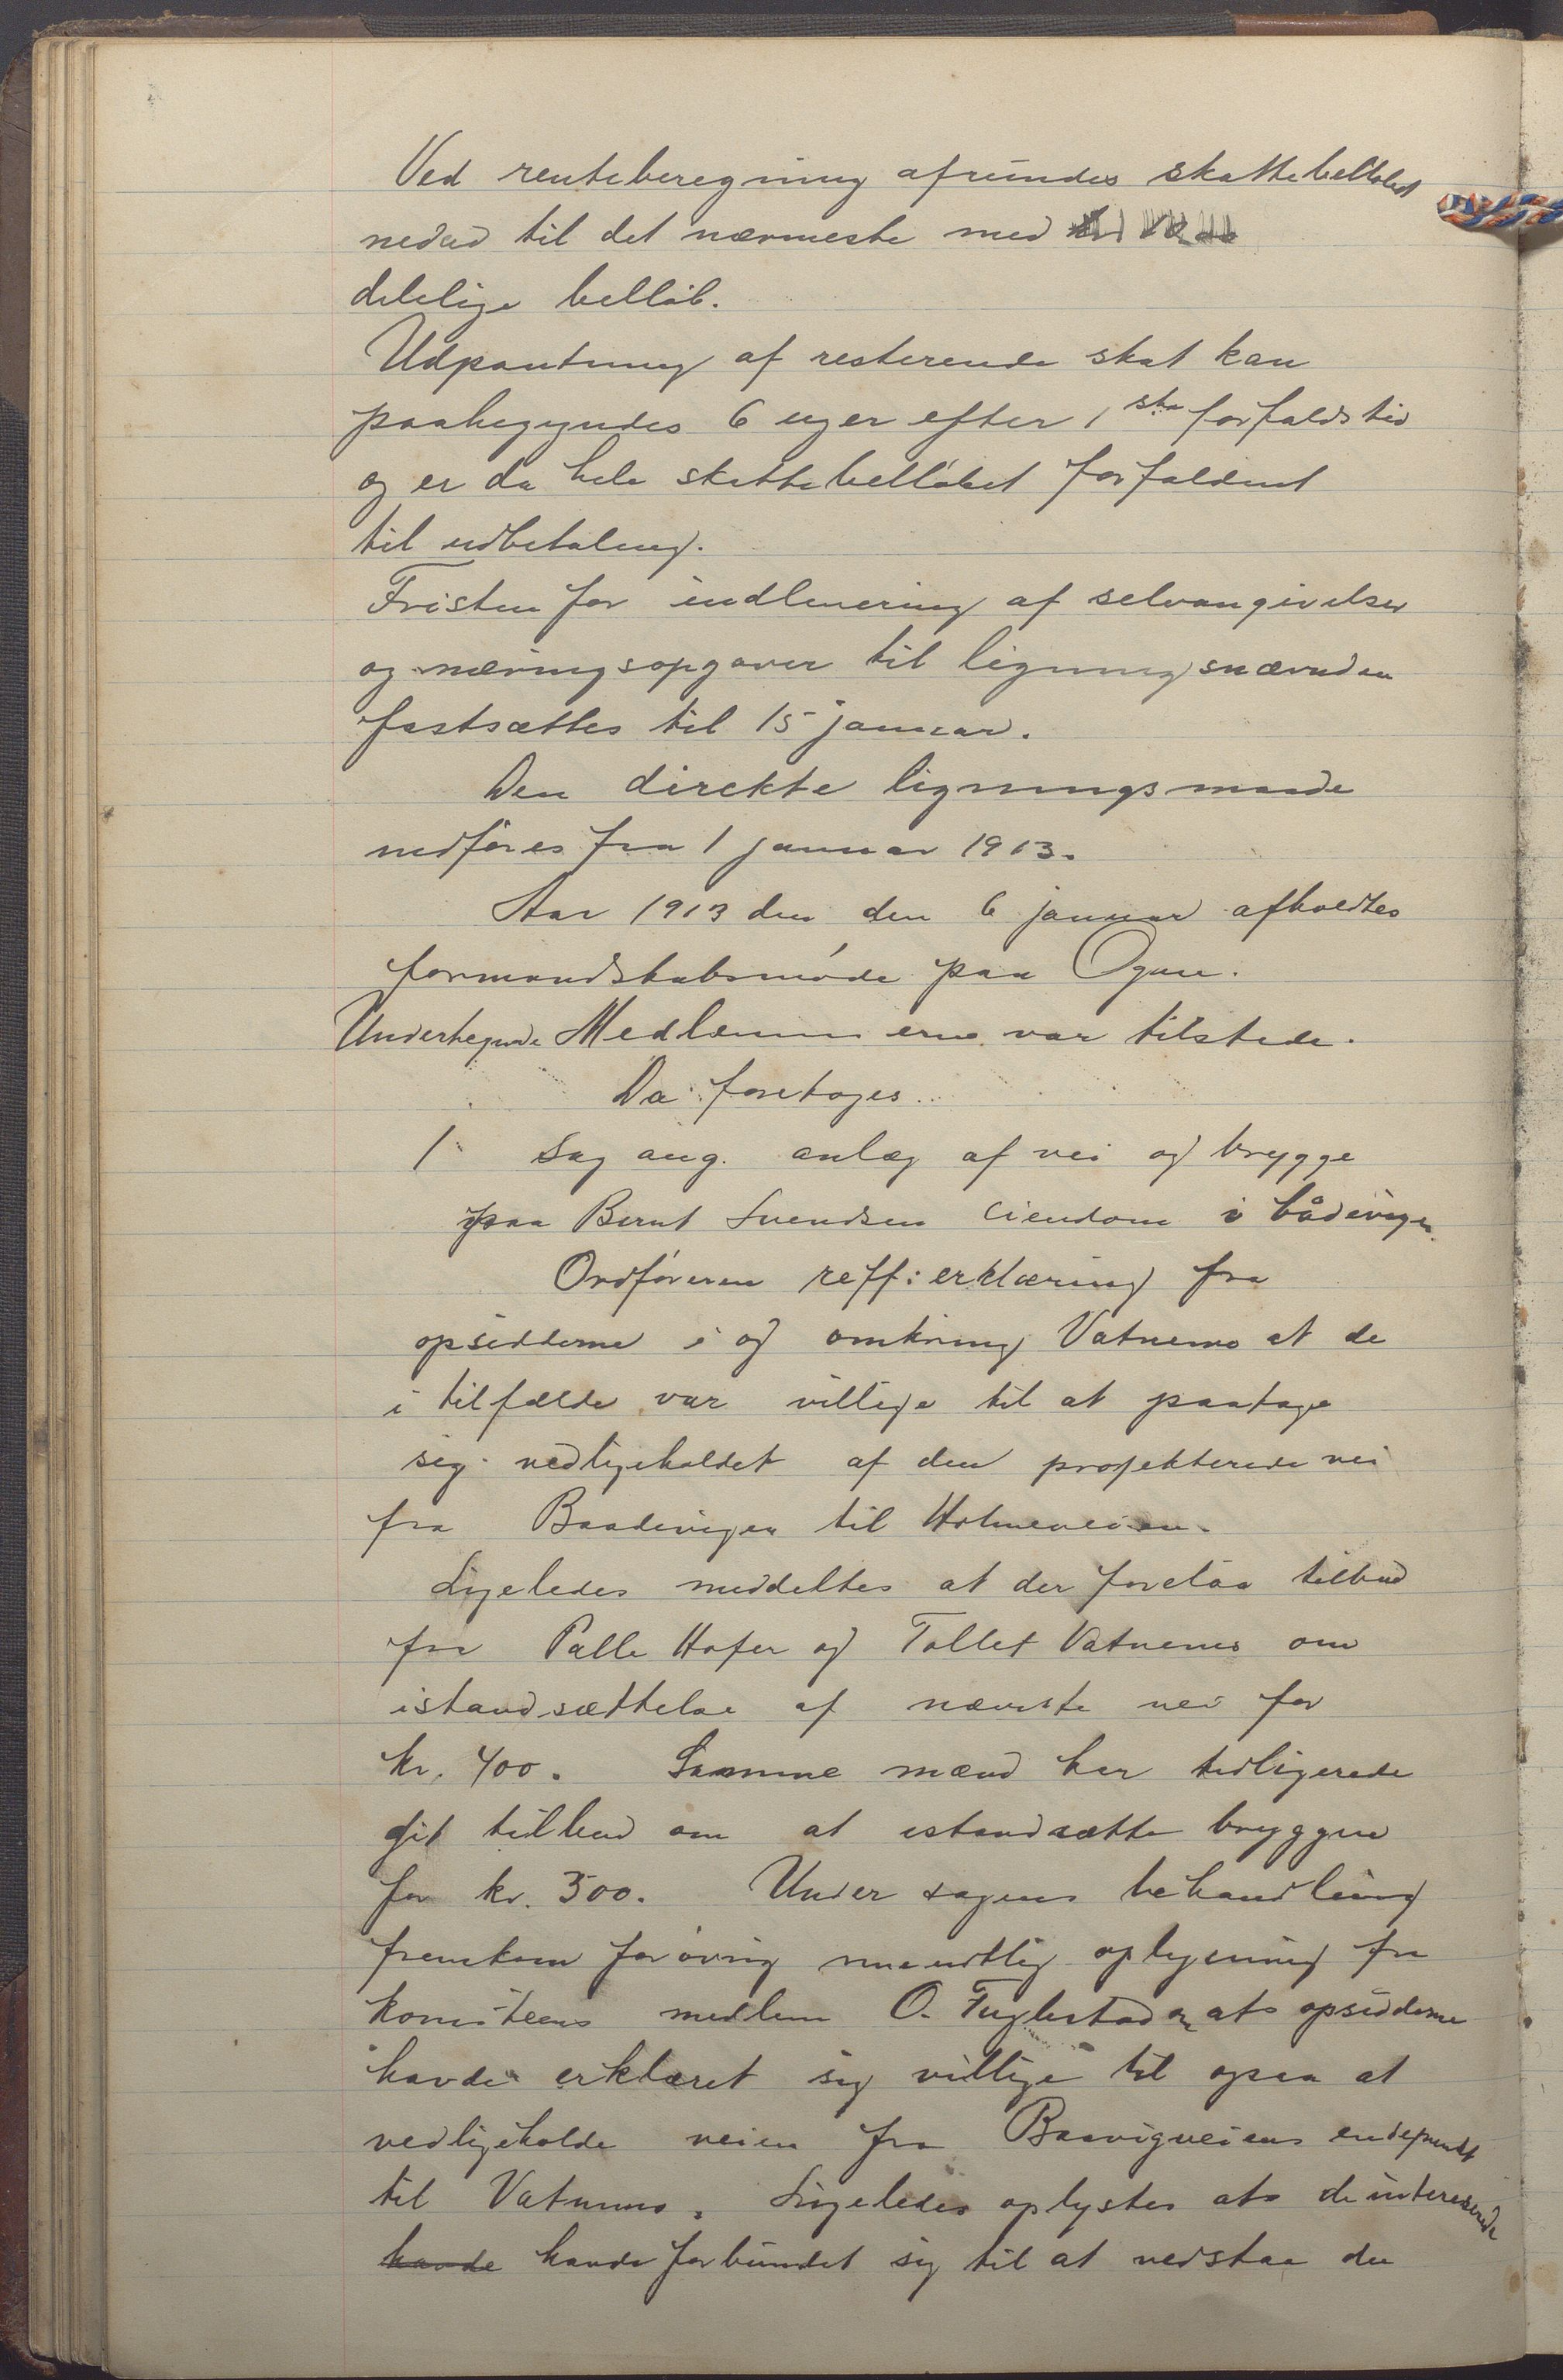 Ved renteberegning afrundes skattebelløbet
nedad til det nærmeste med
delelige belløb.
Udpantning af resterende skat kan
paabegyndes 6 uger efter 1ste forfaldstid
og er da hele skattebelløbet forfaldent
til udbetaling.
Fristen for indlevering af selvangivelser
og næringsopgaver til ligningsnævnden
fastsættes til 15 januar.
Den direkte ligningsmaade
indføres fra 1 januar 1913.
Aar 1913 den den 6 januar afholdtes
formandskabsmøde paa Ogne.
Undertegnede Medlemmerne var tilstede.
Da foretoges
1 Sag ang. anlæg af vei og brygge
paa Bernt Svendsen eiendom i bådevigen.
Ordføreren reff: erklæring fra
opsidderne i og omkring Vatnemo at de
i tilfælde var villige til at paatage
sig vedligeholdet af den projekterede vei
fra Baadevigen til Holmeveien.
Ligeledes meddeltes at der forelaa tilbud
fra Palle Hafer og Tollef Vatnemo om
istandsættelse af nævnte vei for
kr. 400. Samme mænd har tidligerede
git tilbud om at istandsætte bryggen
for kr. 300. Under sagens behandling
fremkom forøvrig mundtlig oplysning fra
komiteens medlem O. Fuglestad om at opsidderne
havde erklæret sig villige til ogsaa at
vedligeholde veien fra Baavigveiens endepunkt
til Vatnemo. Ligeledes oplystes at de intereserede
havde havde forbundet sig til at vedstaa de